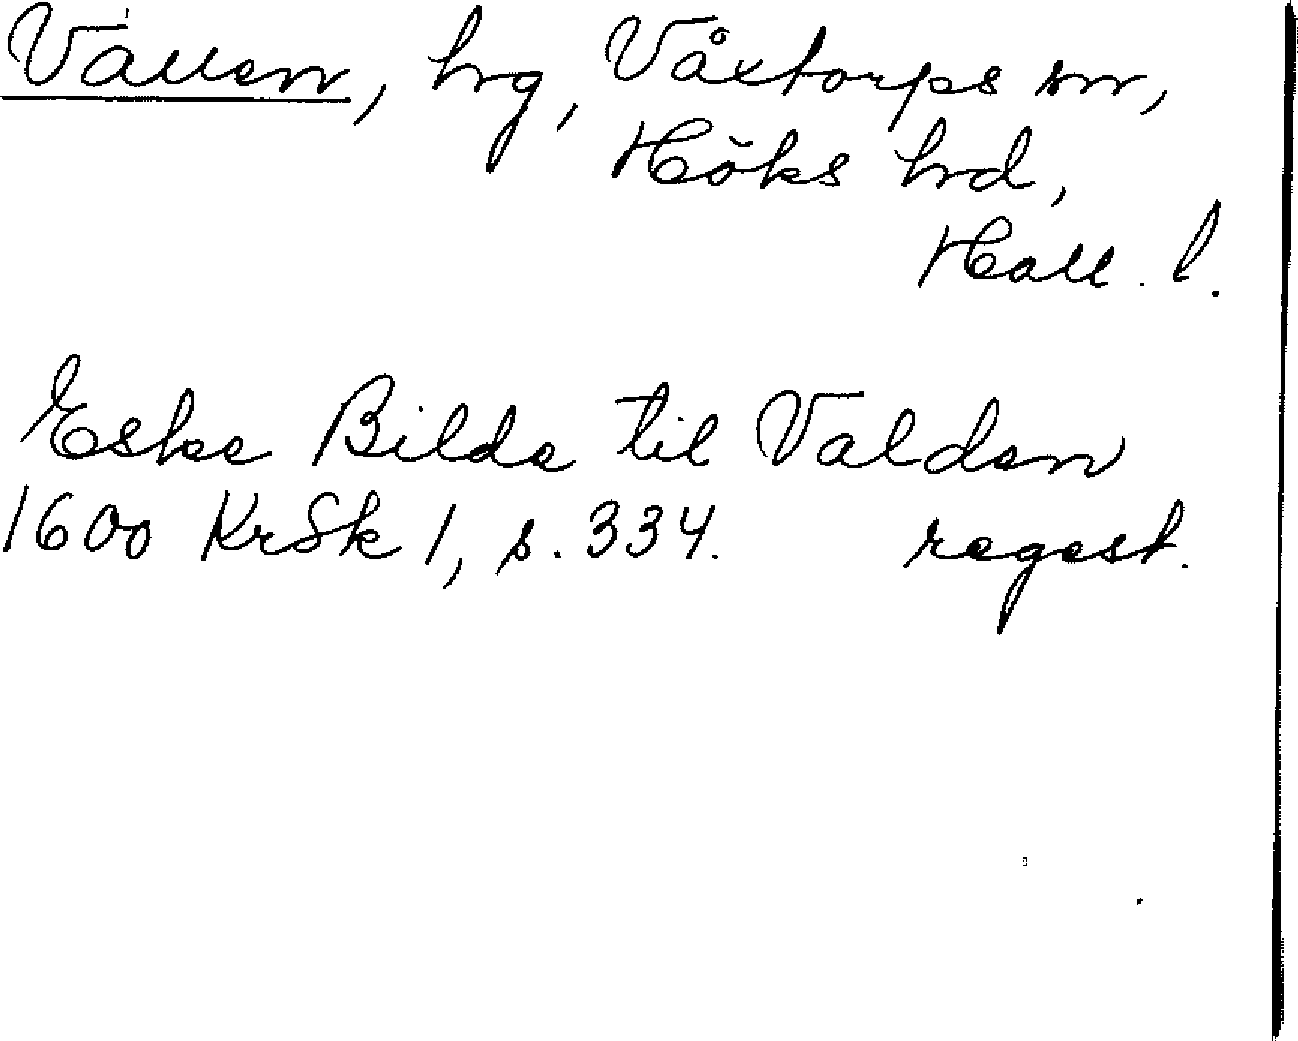 Vallen, hrg, Våxtorps sn,
Höks hrd,
Hall. l.
Eske Bilde til Valden
1600 KrSk 1, s. 334. regest.